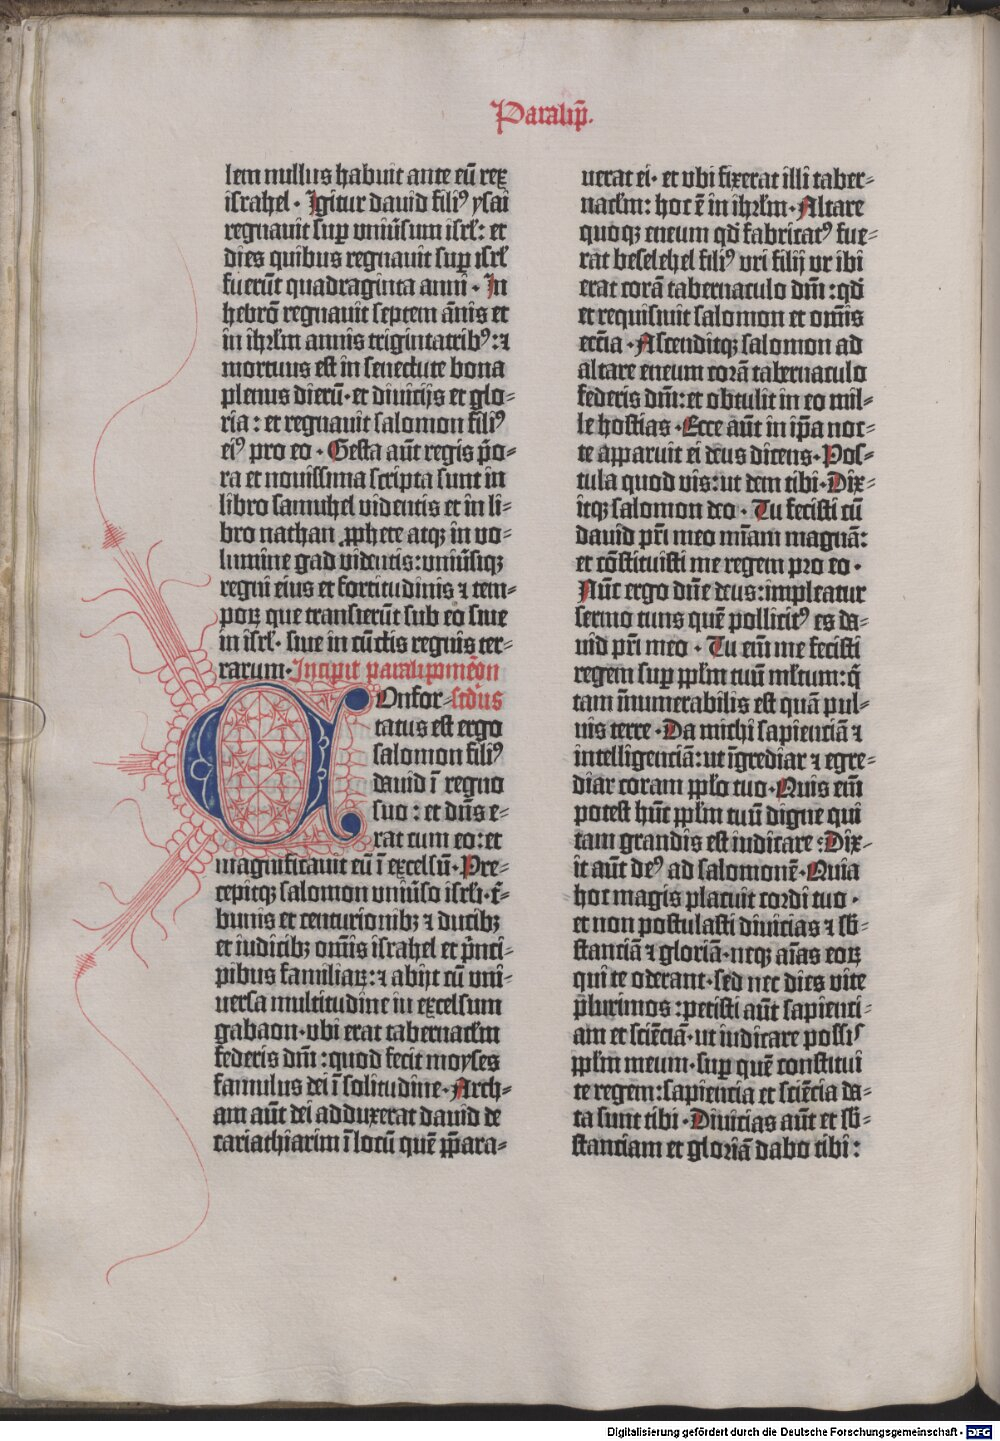 Paralip̄.
lem nullus habuit ante eū rex
israhel · Igitur dauid filiꝰ ysai
regnauit sup̱ uniūsum isrl̄: et
dies quibus regnauit sup̱ isrl̄
fuerūt quadraginta anni · In
hebrō regnauit septem ānis et
in ihrl̄m annis trigintatribꝰ: ⁊
mortuus est in senectute bona
plenus dierū · et diuicijs et glo⸗
ria : et regnauit salomon filiꝰ
eiꝰ pro eo · Gesta aūt regis p̄o⸗
ra et nouissima scripta sunt in
libro samuhel videntis et in li⸗
bro nathan ꝓphete atqꝫ in vo⸗
lumine gad videntis: uniūsiqꝫ
regni eius et fortitudinis ⁊ tem⸗
poꝝ que transierūt sub eo siue
in isrl̄ · siue in cūctis regnis ter⸗
rarum · Incipit paralipomēon
Onfor⸗ scd̄us
tatus est ergo
salomon filiꝰ
dauid ī regno
suo : et dn̄s e⸗
rat cum eo: et
magnificauit eū ī excelsū · Pre⸗
cepitqꝫ salomon uniūso isrl̄i · t̄⸗
bunis et centurionibꝫ ⁊ ducibꝫ
et iudicibꝫ om̄is israhel et p̄nci⸗
pibus familiaꝝ: ⁊ abijt cū uni⸗
uersa multitudine in excelsum
gabaon · ubi erat tabernacl̄m
federis dn̄i : quod fecit moyses
famulus dei ī solitudine · Arch⸗
am aūt dei adduxerat dauid de
cariathiarim ī locū quē p̄para⸗
uerat ei · et ubi fixerat illi taber⸗
nacl̄m: hoc ē in ihrl̄m · Altare
quoqꝫ eneum qd̄ fabricatꝰ fue⸗
rat beselehel filiꝰ vri filij ur ibi
erat corā tabernaculo dn̄i : qd̄
et requisiuit salomon et om̄is
eccīa · Ascenditqꝫ salomon ad
altare eneum corā tabernaculo
federis dn̄i: et obtulit in eo mil⸗
le hostias · Ecce aūt in ip̄a noc⸗
te apparuit ei deus dicens · Pos⸗
tula quod vis: ut dem tibi · Dix⸗
itqꝫ salomon deo · Tu fecisti cū
dauid pr̄i meo mīam magnā:
et cōstituisti me regem pro eo ·
Nūc ergo dn̄e deus: impleatur
sermo tuus quē pollicitꝰ es da⸗
uid pr̄i meo · Tu eīm me fecisti
regem sup̱ ppl̄m tuū ml̄tum: q̄
tam īnumerabilis est quā pul⸗
uis terre · Da michi sapienciā ⁊
intelligenciā: ut īgrediar ⁊ egre⸗
diar coram ppl̄o tuo · Quis eīm
potest hūc ppl̄m tuū digne qui
tam grandis est iudicare : Dix⸗
it aūt deꝰ ad salomonē · Quia
hoc magis placuit cordi tuo ·
et non postulasti diuicias ⁊ sb̄⸗
stanciā ⁊ gloriā · neqꝫ aīas eoꝝ
qui te oderant · sed nec dies vite
plurimos : petisti aūt sapienci⸗
am et sciēciā · ut iudicare possis
ppl̄m meum · sup̱ quē constitui
te regem: sapiencia et sciēcia da⸗
ta sunt tibi · Diuicias aūt et sb̄⸗
stanciam et gloriā dabo tibi :
Digitalisierung gefördert durch die Deutsche Forschungsgemeinschaft - DFG